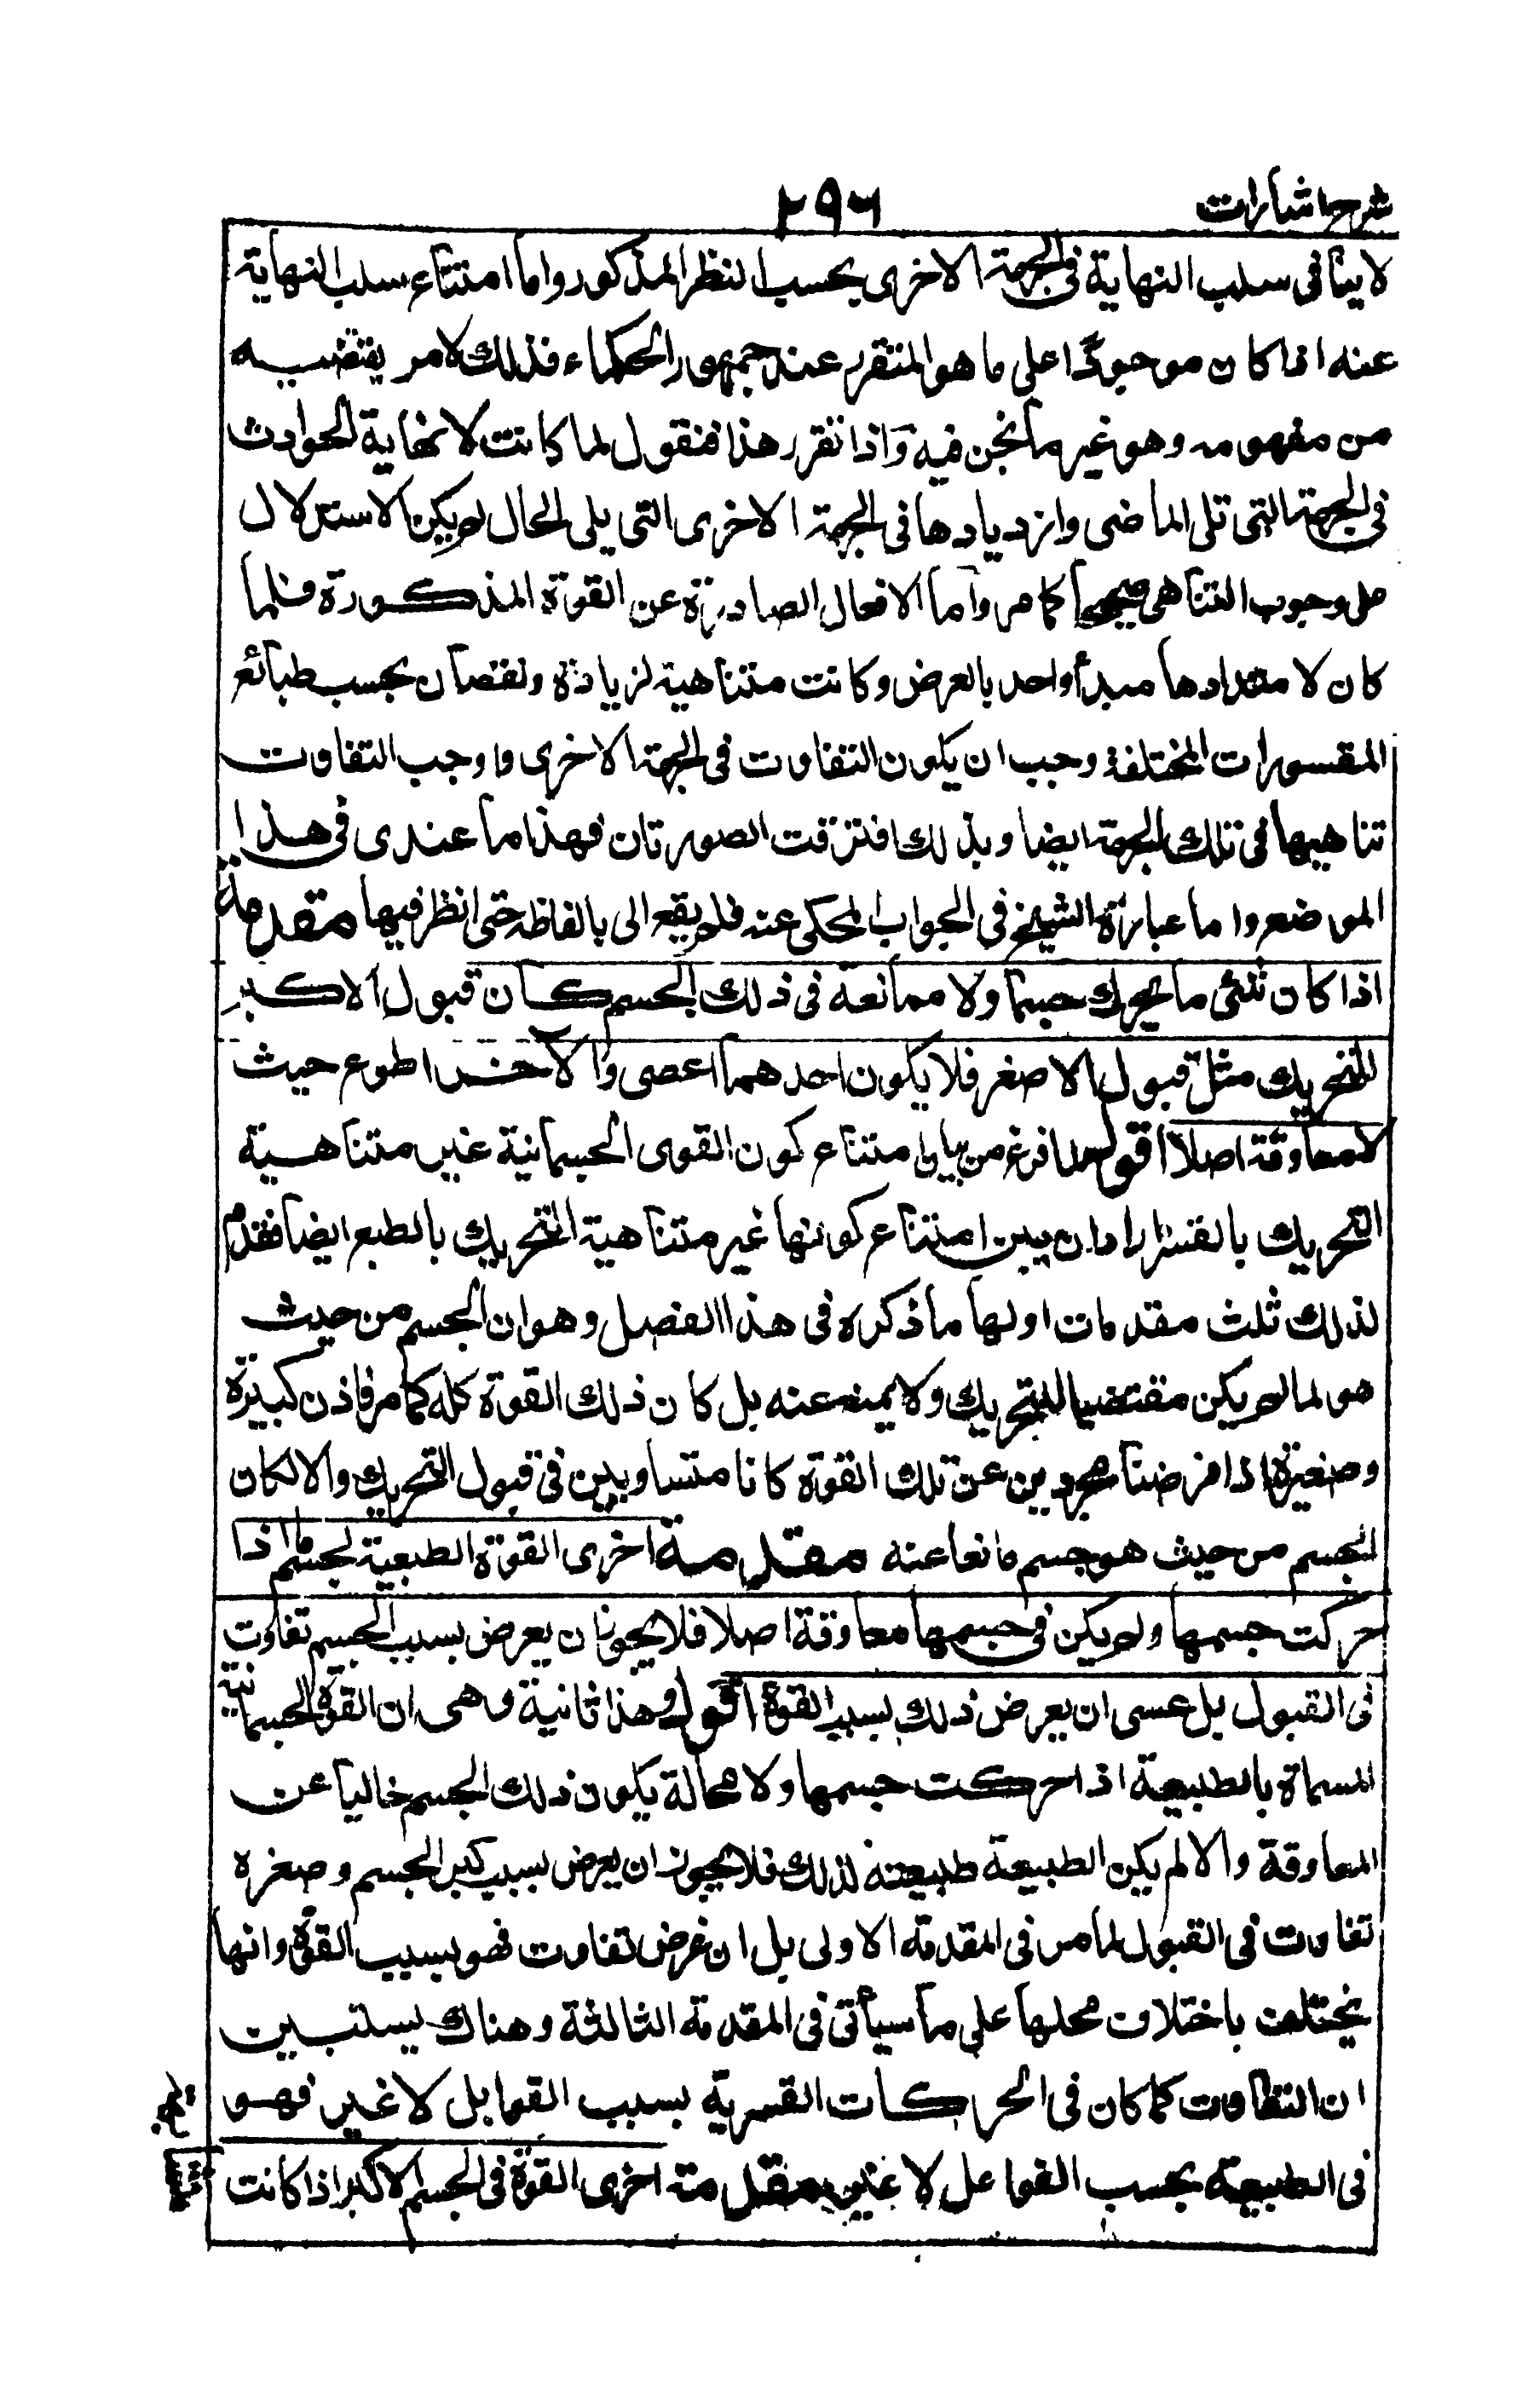 شرح اشارات
٢٩٦
لا ينافى سلب النهاية فى الجهة الاخرى بحسب النظر المذكور واما امتناع سلب النهاية
عنه اذا كان موجودًا على ما هو المتقرر عند جمهور الحكماء فذلك لامر يقتضيه
من مفهومه وهو غير ما نحن فيه واذا تقرر هذا فنقول لما كانت لا نهاية الحوادث
فى الجهة التى تلى الماضى وازديادها فى الجهة الاخرى التى يلى الحال لم يكن الاستدلال
على وجوب التناهى صحيحا كما مر واما الافعال الصادرة عن القوة المذكورة فلما
كان لامتدادها مبدأ واحد بالعرض وكانت متناهية لزيادة ونقصان بحسب طبائع
المقسورات المختلفة وجب ان يكون التفاوت فى الجهة الاخرى واوجب التفاوت
تناهيها فى تلك الجهة ايضا وبذلك افترقت الصورتان فهذا ما عندى فى هذا
الموضع واما عبارة الشيخ فى الجواب المحكى عنه فلم يقع الى بالفاظه حتى انظر فيها مقدمة
اذا كان شئ ما يحرك جسما ولا ممانعة فى ذلك الجسم كان قبول الاكبر
للتحريك مثل قبول الاصغر فلا يكون احدهما اعصى والآخر اطوع حيث
لا معاوقة اصلا اقول لما فرغ من بيان امتناع كون القوى الجسمانية غير متناهية
التحريك بالقسر اراد ان يبين امتناع كونها غير متناهية التحريك بالطبع ايضا فقدم
لذلك ثلث مقدمات اولها ما ذكره فى هذا الفصل وهو ان الجسم من حيث
هو لما لم يكن مقتضيا للتحريك ولا يمنع عنه بل كان ذلك القوة كله كما مر فاذن كبيرة
وصغيرة اذا فرضنا مجردين عن تلك القوة كانا متساويين فى قبول التحريك والا لكان
الجسم من حيث هو جسم مانعا عنه مقدمة اخرى القوة الطبعية لجسم ما اذا
حركت جسمها ولم يكن فى جسمها معاوقة اصلا فلا يجوز ان يعرض بسبب الجسم تفاوت
فى القبول بل عسى ان يعرض ذلك بسبب القوة اقول وهذا ثانية وهى ان القوة الجسمانية
المسماة بالطبيعة اذا حركت جسمها ولا محالة يكون ذلك الجسم خاليا عن
المعاوقة والا لم يكن الطبيعة طبيعته لذلك فلا يجوز ان يعرض بسبب كبر الجسم وصغره
تفاوت فى القبول لما مر فى المقدمة الاولى بل ان عرض تفاوت فهو بسبب القوة وانها
يختلف باختلاف محلها على ما سيأتى فى المقدمة الثالثة وهناك يستبين
ان التفاوت كما كان فى الحركات القسرية بسبب القوابل لا غير فهو
فى الطبيعة بحسب الفواعل لا غير مقدمة اخرى القوة فى الجسم الاكبر اذا كانت